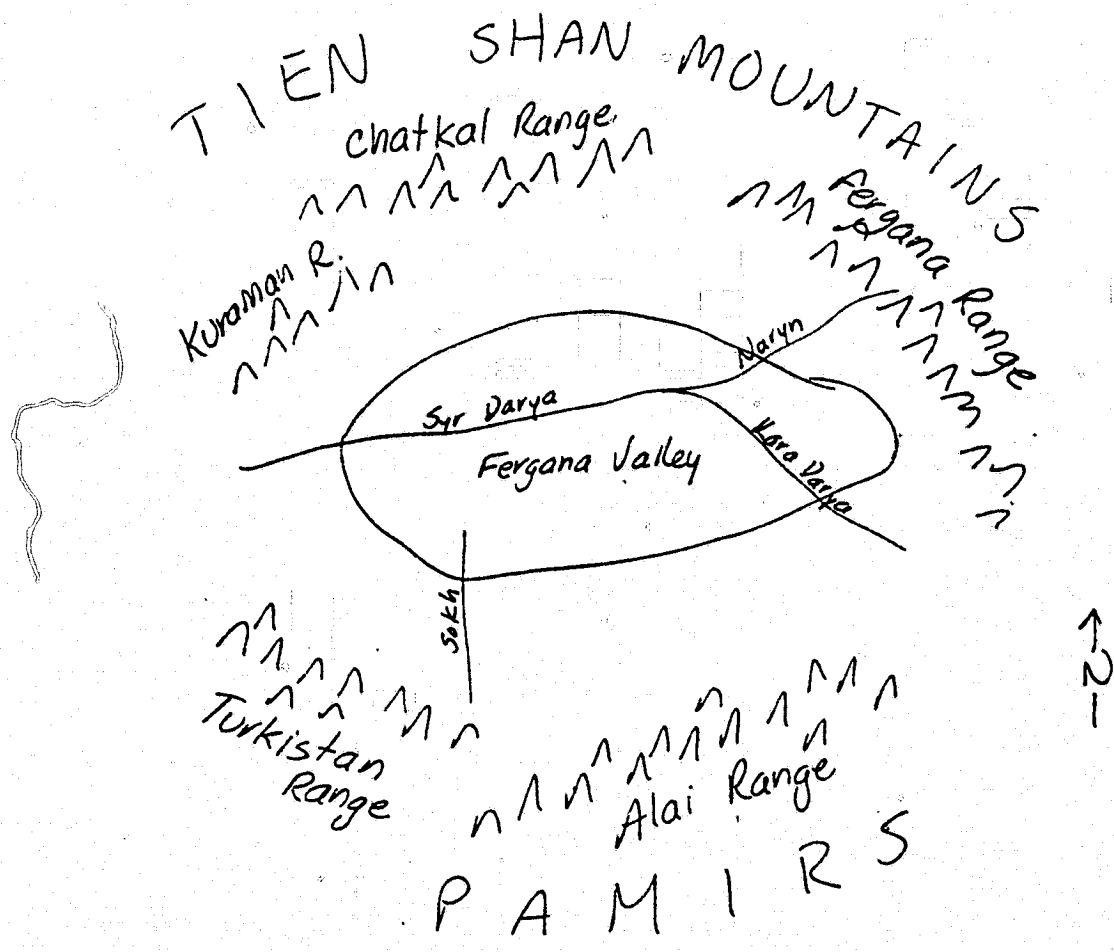 TIEN SHAN MOUNTAINS
Chatkal Range
Fergana Range
Kuraman R.
Naryn
Syr Darya
Kara Darya
Fergana Valley
Sokh
N
Turkistan
Range
Alai Range
PAMIRS